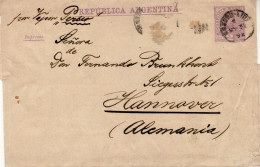 por Vapor Perseo
REPUBLICA ARGENTINA
Señora
de Don Fernando Brunkhorst
Siegesstr. 1
Hannover
(Alemania)